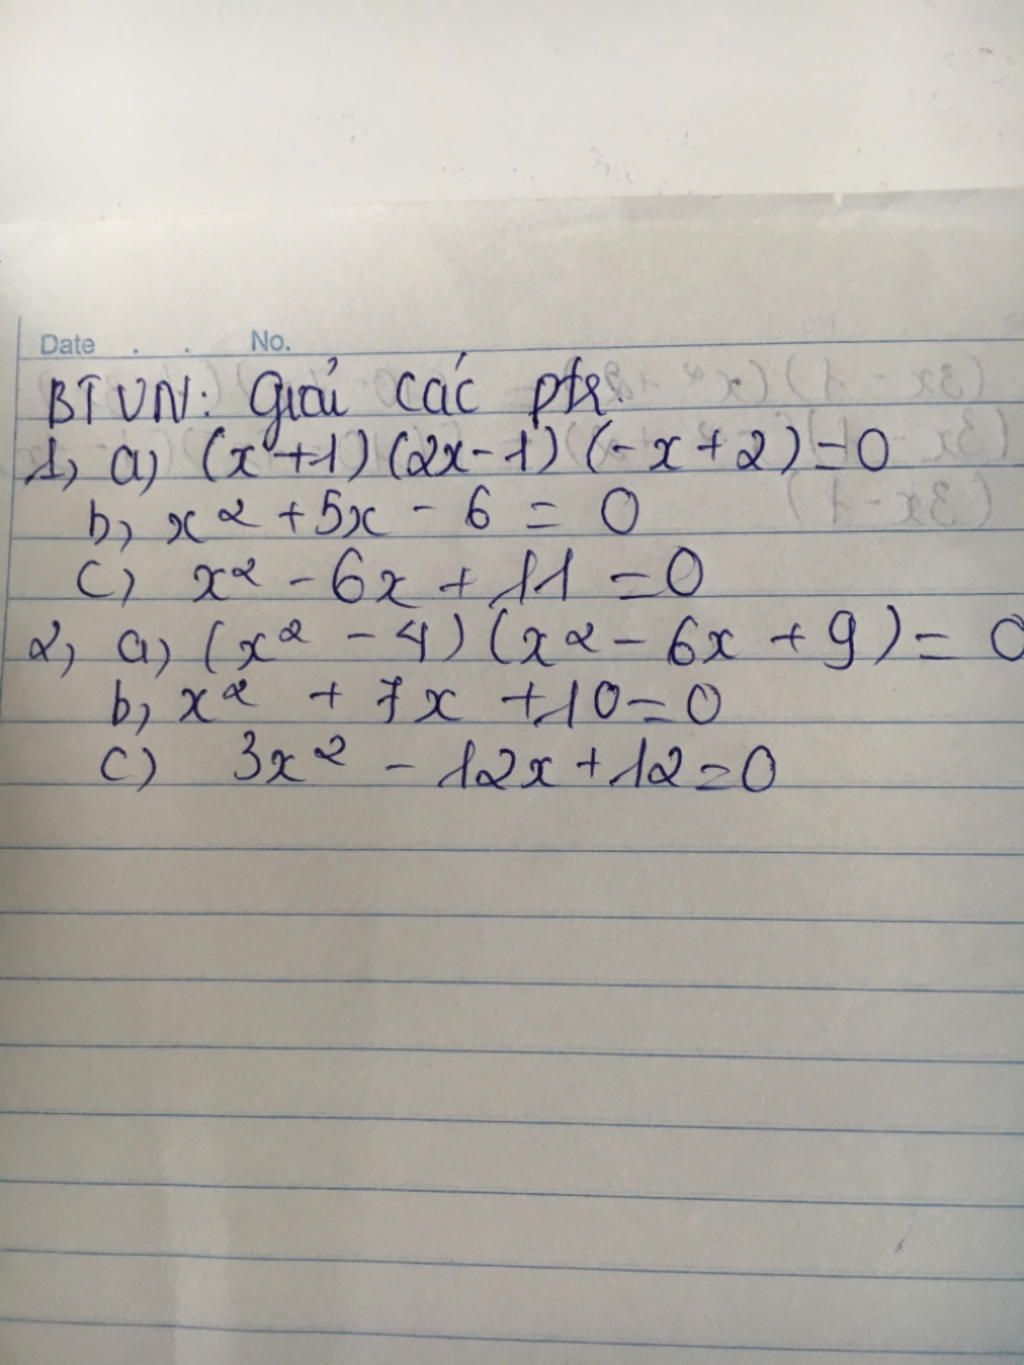 Date . . No.
BTVN: Giải các ptr.
1, a) (x+1)(2x-1)(-x+2)=0
b, x² + 5x - 6 = 0
c) x² - 6x + 11 = 0
2, a) (x² - 4)(x² - 6x + 9) = 0
b, x² + 7x + 10 = 0
c) 3x² - 12x + 12 = 0